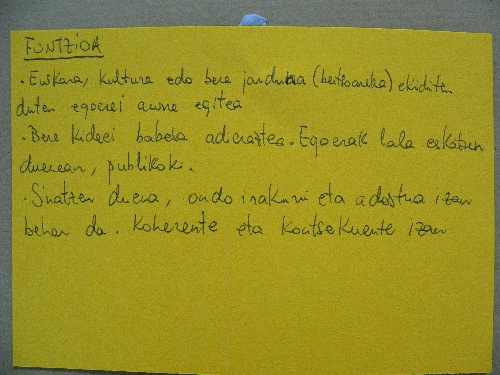 FUNTZIOA
· Euskara, kultura edo bere jarduna (bertsoaroka) ekiditen
duten egoerei aurre egitea
· Bere kideei babesa adieraztea. Egoerak hala eskatzen
duenean, publikoki.
· Sinatzen duena, ondo irakurri eta adostua izan
behar da. Koherente eta kontsekuente izan